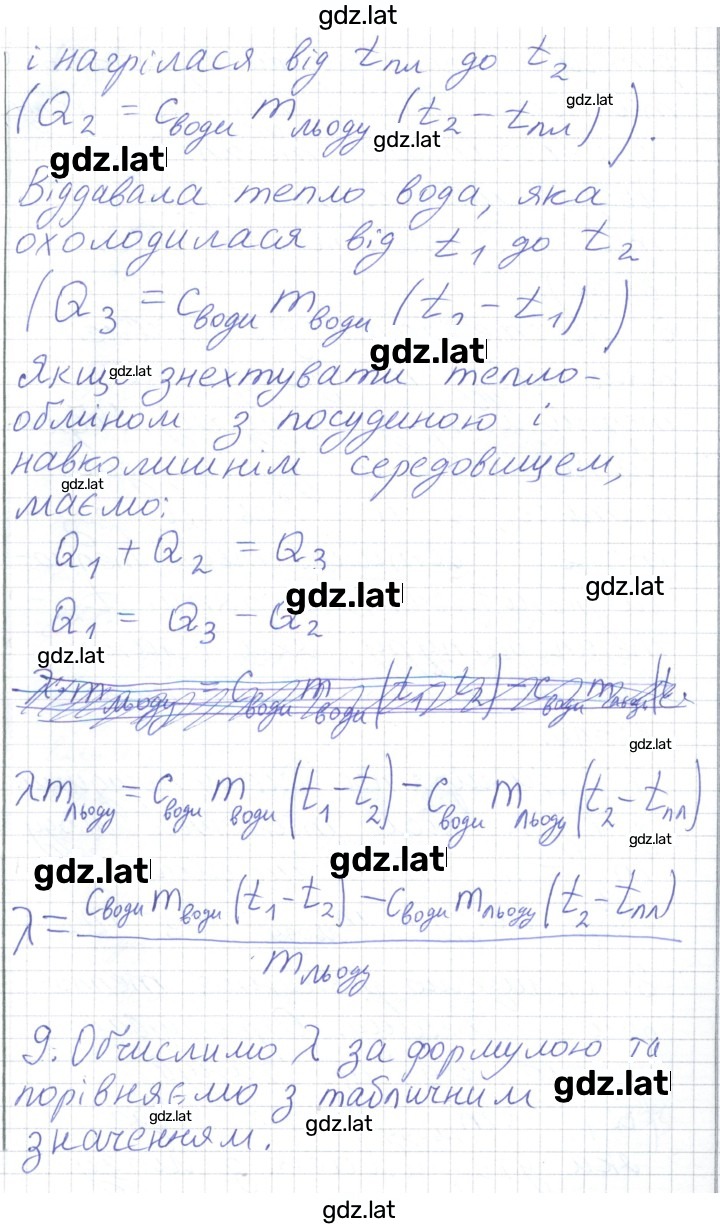 gdz.lat
і нагрілася від tпл до t₂
gdz.lat
(Q₂ = Cводи mльоду (t₂ - tпл)).
gdz.lat
gdz.lat
Віддавала тепло вода, яка
охолодилася від t₁ до t₂
(Q₃ = Cводи mводи (t₂ - t₁))
gdz.lat
Якщо знехтувати тепло-
gdz.lat
обміном з посудиною і
навколишнім середовищем,
gdz.lat
маємо:
Q₁ + Q₂ = Q₃
gdz.lat
gdz.lat
Q₁ = Q₃ - Q₂
gdz.lat
λ mльоду = Cводи mводи (t₁ - t₂) - Cводи mльоду (t
gdz.lat
λ mльоду = Cводи mводи (t₁ - t₂) - Cводи mльоду (t₂ - tпл)
gdz.lat
gdz.lat
gdz.lat
λ = Cводи mводи (t₁ - t₂) - Cводи mльоду (t₂ - tпл)
mльоду
9. Обчислимо λ за формулою та
порівняємо з табличним
gdz.lat
gdz.lat
значенням.
gdz.lat
gdz.lat